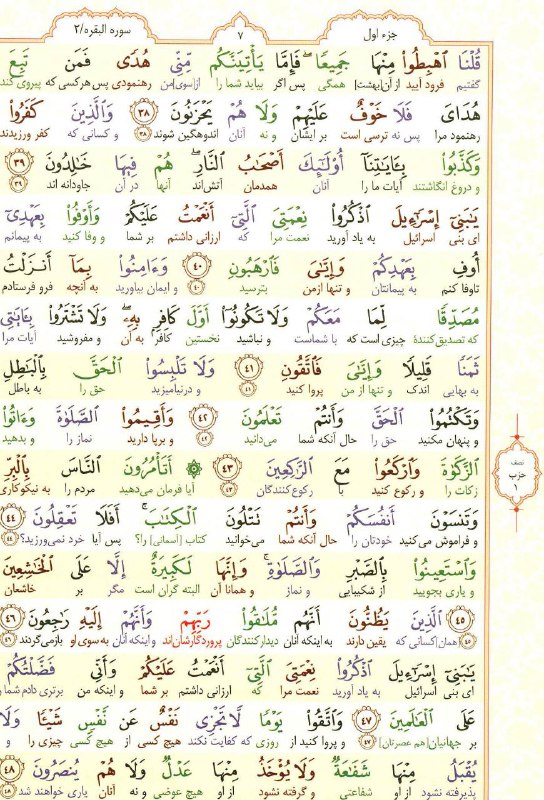 جزء اول ٧ سوره البقره/٢
قُلْنَا ٱهْبِطُوا۟ مِنْهَا جَمِيعًا ۖ فَإِمَّا يَأْتِيَنَّكُم مِّنِّى هُدًى فَمَن تَبِعَ
گفتیم فرود آیید از آن[بهشت] همگی پس اگر بیاید شما را از[سوی]من رهنمودی پس هرکسی که پیروی کند
هُدَاىَ فَلَا خَوْفٌ عَلَيْهِمْ وَلَا هُمْ يَحْزَنُونَ ٣٨ وَٱلَّذِينَ كَفَرُوا۟
رهنمود مرا پس نه ترسی است بر ایشان و نه آنان اندوهگین شوند ٣٨ و کسانی که کفر ورزیدند
وَكَذَّبُوا۟ بِـَٔايَـٰتِنَآ أُو۟لَـٰٓئِكَ أَصْحَـٰبُ ٱلنَّارِ ۖ هُمْ فِيهَا خَـٰلِدُونَ ٣٩
و دروغ انگاشتند آیات ما را آنان همدمان آتش‌اند آنها در آن جاودانه اند ٣٩
يَـٰبَنِىٓ إِسْرَٰٓءِيلَ ٱذْكُرُوا۟ نِعْمَتِىَ ٱلَّتِىٓ أَنْعَمْتُ عَلَيْكُمْ وَأَوْفُوا۟ بِعَهْدِىٓ
ای بنی اسرائیل به یاد آورید نعمت مرا که ارزانی داشتم بر شما و وفا کنید به پیمانم
أُوفِ بِعَهْدِكُمْ وَإِيَّـٰىَ فَٱرْهَبُونِ ٤٠ وَءَامِنُوا۟ بِمَآ أَنزَلْتُ
تاوفا کنم به پیمانتان و تنها ازمن بترسید ٤٠ و ایمان بیاورید به آنچه فرو فرستادم
مُصَدِّقًا لِّمَا مَعَكُمْ وَلَا تَكُونُوٓا۟ أَوَّلَ كَافِرٍۭ بِهِۦ ۖ وَلَا تَشْتَرُوا۟ بِـَٔايَـٰتِى
که تصدیق‌کنندهٔ چیزی است که با شماست و نباشید نخستین کافر به آن و مفروشید آیات مرا
ثَمَنًا قَلِيلًا وَإِيَّـٰىَ فَٱتَّقُونِ ٤١ وَلَا تَلْبِسُوا۟ ٱلْحَقَّ بِٱلْبَـٰطِلِ
به بهایی اندک و تنها از من پروا کنید ٤١ و درنیامیزید حق را به باطل
وَتَكْتُمُوا۟ ٱلْحَقَّ وَأَنتُمْ تَعْلَمُونَ ٤٢ وَأَقِيمُوا۟ ٱلصَّلَوٰةَ وَءَاتُوا۟
و پنهان مکنید حق را حال آنکه شما می‌دانید ٤٢ و برپا دارید نماز را و بدهید
ٱلزَّكَوٰةَ وَٱرْكَعُوا۟ مَعَ ٱلرَّٰكِعِينَ ٤٣ ۞ أَتَأْمُرُونَ ٱلنَّاسَ بِٱلْبِرِّ
زکات را و رکوع کنید با رکوع‌کنندگان ٤٣ آیا فرمان می‌دهید مردم را به نیکوکاری
نصف
حزب
١
وَتَنسَوْنَ أَنفُسَكُمْ وَأَنتُمْ تَتْلُونَ ٱلْكِتَـٰبَ ۚ أَفَلَا تَعْقِلُونَ ٤٤
و فراموش می‌کنید خودتان را حال آنکه شما می‌خوانید کتاب [آسمانی] را؟ پس آیا خرد نمی‌ورزید؟ ٤٤
وَٱسْتَعِينُوا۟ بِٱلصَّبْرِ وَٱلصَّلَوٰةِ ۚ وَإِنَّهَا لَكَبِيرَةٌ إِلَّا عَلَى ٱلْخَـٰشِعِينَ
و یاری بجویید از شکیبایی و نماز و همانا آن البته گران است مگر بر خاشعان
٤٥ ٱلَّذِينَ يَظُنُّونَ أَنَّهُم مُّلَـٰقُوا۟ رَبِّهِمْ وَأَنَّهُمْ إِلَيْهِ رَٰجِعُونَ ٤٦
٤٥ [همان]کسانی که یقین دارند به اینکه آنان دیدارکنندگان پروردگارشان‌اند و اینکه آنان به سوی او بازمی‌گردند ٤٦
يَـٰبَنِىٓ إِسْرَٰٓءِيلَ ٱذْكُرُوا۟ نِعْمَتِىَ ٱلَّتِىٓ أَنْعَمْتُ عَلَيْكُمْ وَأَنِّى فَضَّلْتُكُمْ
ای بنی اسرائیل به یاد آورید نعمت مرا که ارزانی داشتم بر شما و اینکه من برتری دادم شما را
عَلَى ٱلْعَـٰلَمِينَ ٤٧ وَٱتَّقُوا۟ يَوْمًا لَّا تَجْزِى نَفْسٌ عَن نَّفْسٍ شَيْـًٔا وَلَا
بر جهانیان[هم عصرتان] ٤٧ و پروا کنید از روزی که کفایت نکند هیچ کسی از هیچ کسی چیزی را و
يُقْبَلُ مِنْهَا شَفَـٰعَةٌ وَلَا يُؤْخَذُ مِنْهَا عَدْلٌ وَلَا هُمْ يُنصَرُونَ ٤٨
پذیرفته نشود از او شفاعتی و گرفته نشود از او هیچ عوضی و نه آنان یاری خواهند شد ٤٨